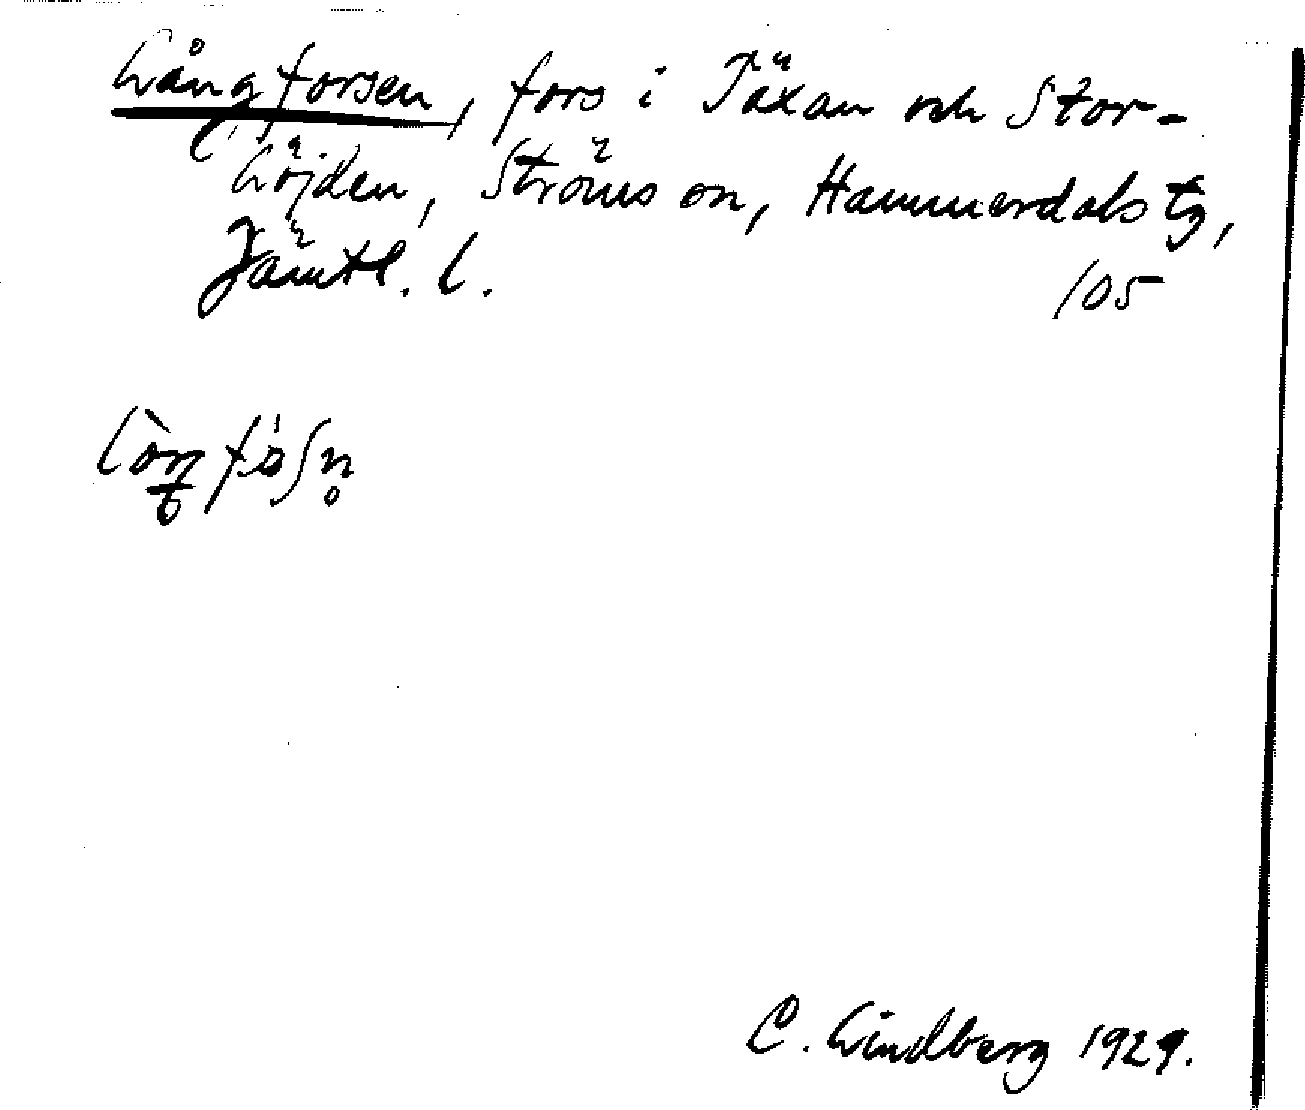 Långforsen, fors i Täxan och Stor-
Löjden, Ströms sn, Hammerdals tg,
Jämtl. l.
105
C. Lindberg 1929.